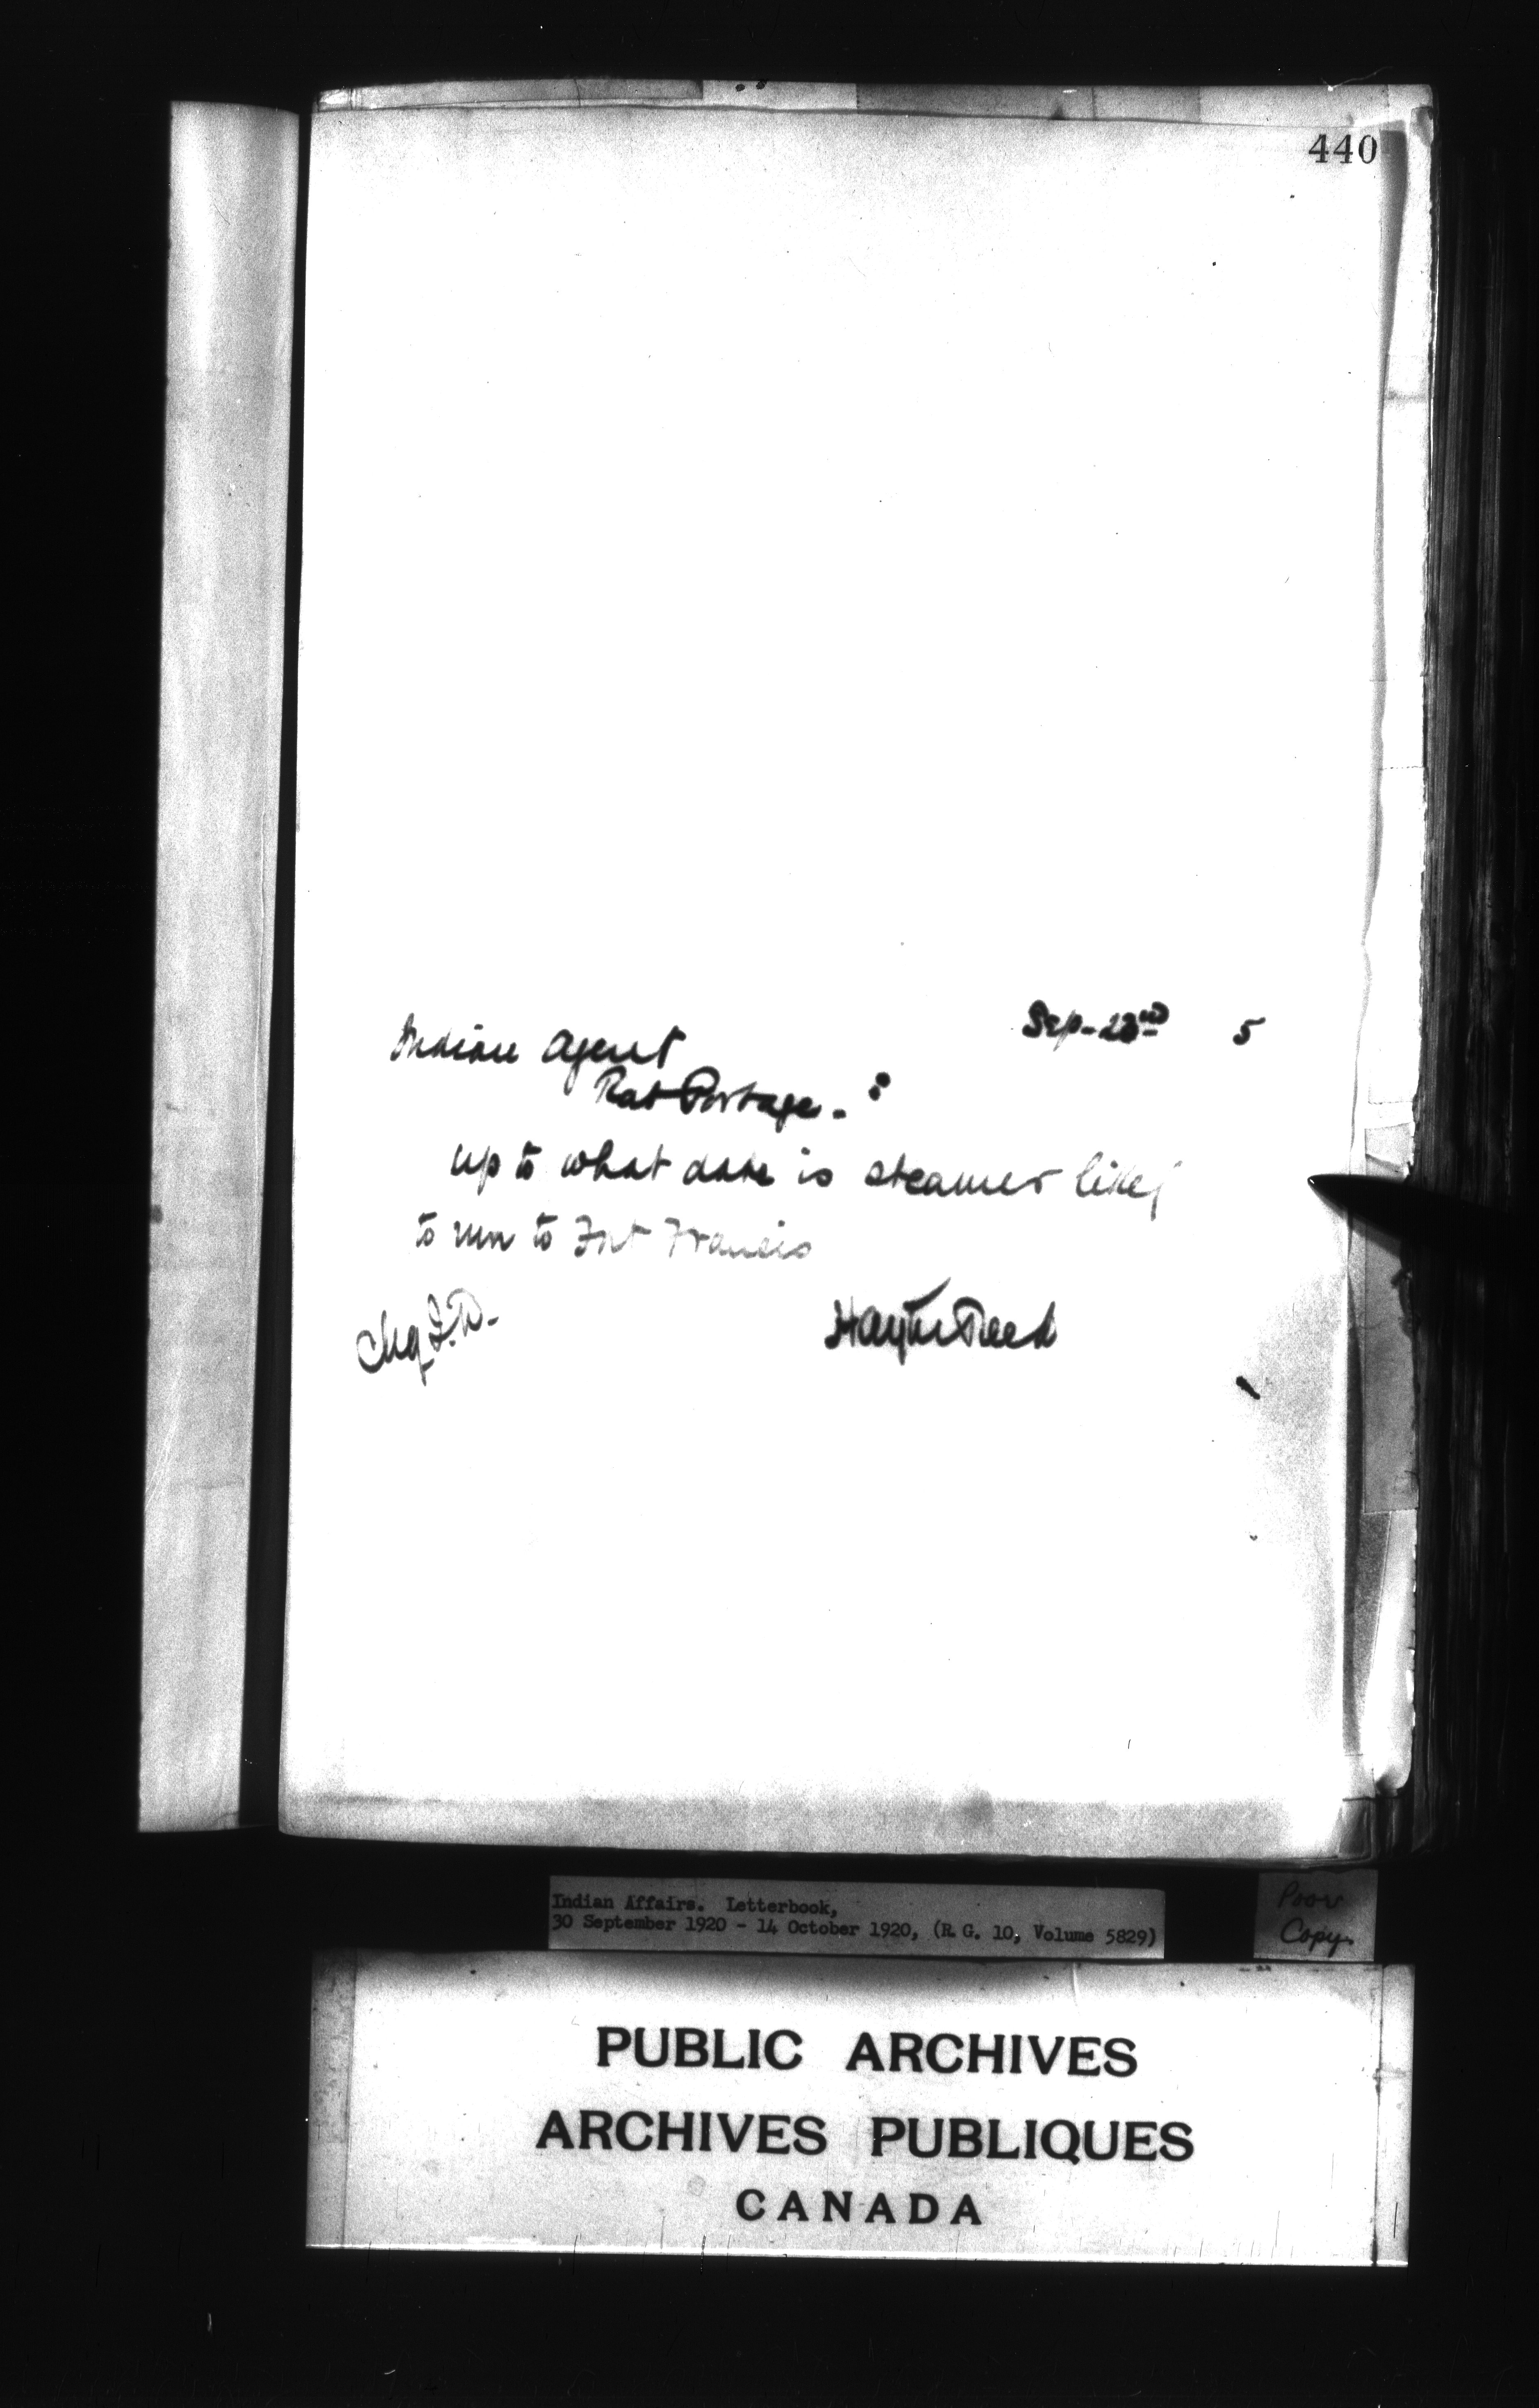 440
Sep- 23rd 5
Indian Agent
Rat Portage.
up to what date is steamer likely
to run to Fort Francis
Chg I.D.
Hayter Reed
Indian Affairs. Letterbook,
30 September 1920 - 14 October 1920, (R.G. 10, Volume 5829)
Poor
Copy.
PUBLIC ARCHIVES
ARCHIVES PUBLIQUES
CANADA